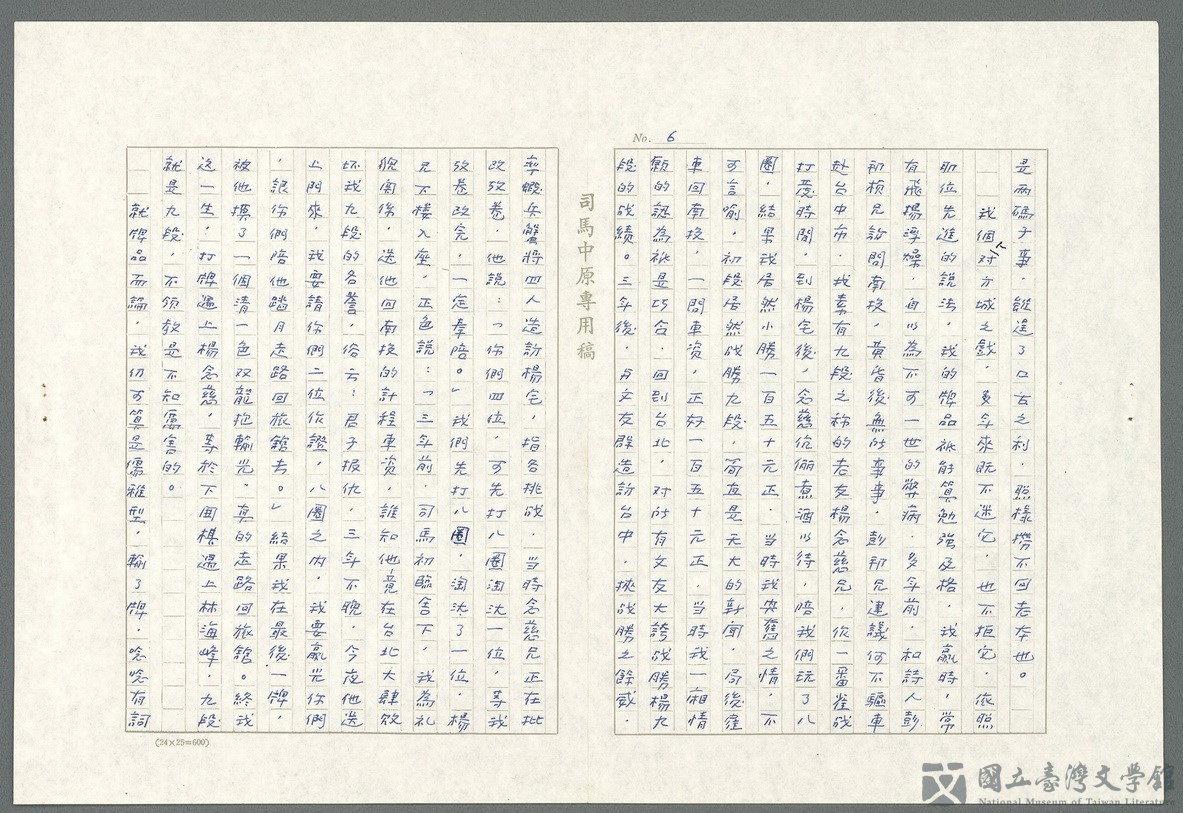 No. 6
是兩碼子事，縱逞了口舌之利，照樣撈不回老本也。
我個人对方城之戲，多年來既不迷它，也不拒它，依照
那位先進的說法，我的牌品祇能算勉強及格，我贏時，常
有飛揚浮燥，自以為不可一世的弊病，多年前，和詩人彭
邦楨兄訪問南投，黃昏後無所事事，彭邦兄建議何不驅車
赴台中市，找素有九段之称的老友楊念慈兄，作一番雀战
打發時間，到楊宅後，念慈伉儷煮酒以待，陪我們玩了八
圈，結果我居然小勝一百五十元正，当時我與奮之情，不
可言喻，初段居然战勝九段，簡直是天大的新闻，局後僱
車回南投，一問車資，正好一百五十元正，当時我一廂情
願的認為祇是巧合，回到台北，对所有文友大誇战勝楊九
段的战績。三年後，与文友群造訪台中，挾战勝之餘威，
司馬中原專用稿
率蝦兵蟹將四人造訪楊宅，指名挑战，当時念慈兄正在批
改攷卷，他說：「你們四位，可先打八圈淘汰一位，等我
攷卷改完，一定奉陪。」我們先打八圈，淘汰了一位，楊
兄下樓入座，正色說：「三年前，司馬初臨舍下，我為礼
貌關係，送他回南投的計程車資，誰知他竟在台北大肆敗
坏我九段的名譽，俗云：君子报仇，三年不晚，今夜他送
上門來，我要請你們二位作證，八圈之內，我要贏光你們
，讓你們陪他踏月走路回旅館去。」結果我在最後一牌，
被他摸了一個清一色双龍抱輸光，真的走路回旅館。終我
这一生，打牌遇上楊念慈，等於下圍棋遇上林海峰，九段
就是九段，不領教是不知厲害的。
就牌品而論，我仍可算是儒雅型，輸了牌，唸唸有詞
(24×25=600)
國立臺灣文學館
National Museum of Taiwan Literature